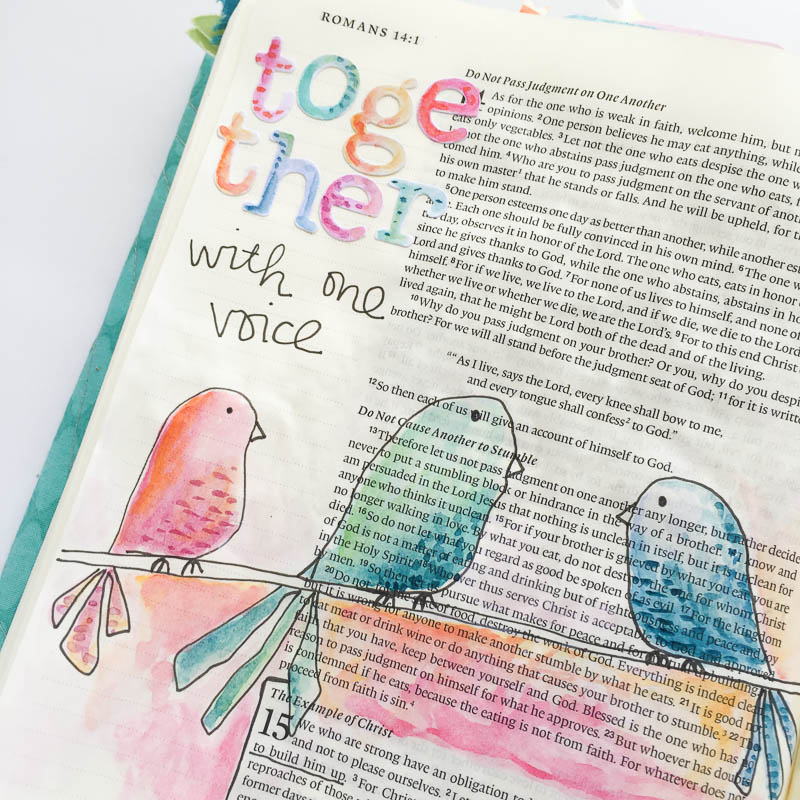 ROMANS 14:1
toge
ther
with one
voice
Do Not Pass Judgment on One Another
As for the one who is weak in faith, welcome him, but
opinions. 2One person believes he may eat anything, while
eats only vegetables. 3Let not the one who eats despise the one
not the one who abstains pass judgment on the one who eats,
comed him. 4Who are you to pass judgment on the servant of
his own master1 that he stands or falls. And he will be upheld, for
to make him stand.
5One person esteems one day as better than another, while another
Each one should be fully convinced in his own mind. 6The one
day, observes it in honor of the Lord. The one who eats, eats in honor
since he gives thanks to God, while the one who abstains, abstains in
Lord and gives thanks to God. 7For none of us lives to himself, and none
himself. 8For if we live, we live to the Lord, and if we die, we die to the
whether we live or whether we die, we are the Lord's. 9For to this end Christ
lived again, that he might be Lord both of the dead and of the living.
10Why do you pass judgment on your brother? Or you, why do you
brother? For we will all stand before the judgment seat of God; 11for it is
"As I live, says the Lord, every knee shall bow to me,
and every tongue shall confess2 to God."
12So then each of us will give an account of himself to God.
Do Not Cause Another to Stumble
13Therefore let us not pass judgment on one another any longer, but rather decide
never to put a stumbling block or hindrance in the way of a brother. I know and
am persuaded in the Lord Jesus that nothing is unclean in itself, but it is unclean for
anyone who thinks it unclean. 15For if your brother is grieved by what you eat, you are
no longer walking in love. By what you eat, do not destroy the one for whom Christ
died. 16So do not let what you regard as good be spoken of as evil. 17For the kingdom
of God is not a matter of eating and drinking but of righteousness and peace and
in the Holy Spirit. 18Whoever thus serves Christ is acceptable to God and approved
by men. 19So then let us pursue what makes for peace and for
20Do not for the sake of food, destroy the work of God. Everything is indeed
but it is wrong for anyone to make another stumble by what he eats. 21It is good
to eat meat or drink wine or do anything that causes your brother to stumble.3 22
faith that you have, keep between yourself and God. Blessed is the one who has
reason to pass judgment on himself for what he approves. 23But whoever has doubts
is condemned if he eats, because the eating is not from faith. For whatever does not
proceed from faith is sin.4
The Example of Christ
15 We who are strong have an obligation to
and not to please ourselves. 2Let
to build him up. 3For Christ
reproaches of those
former days